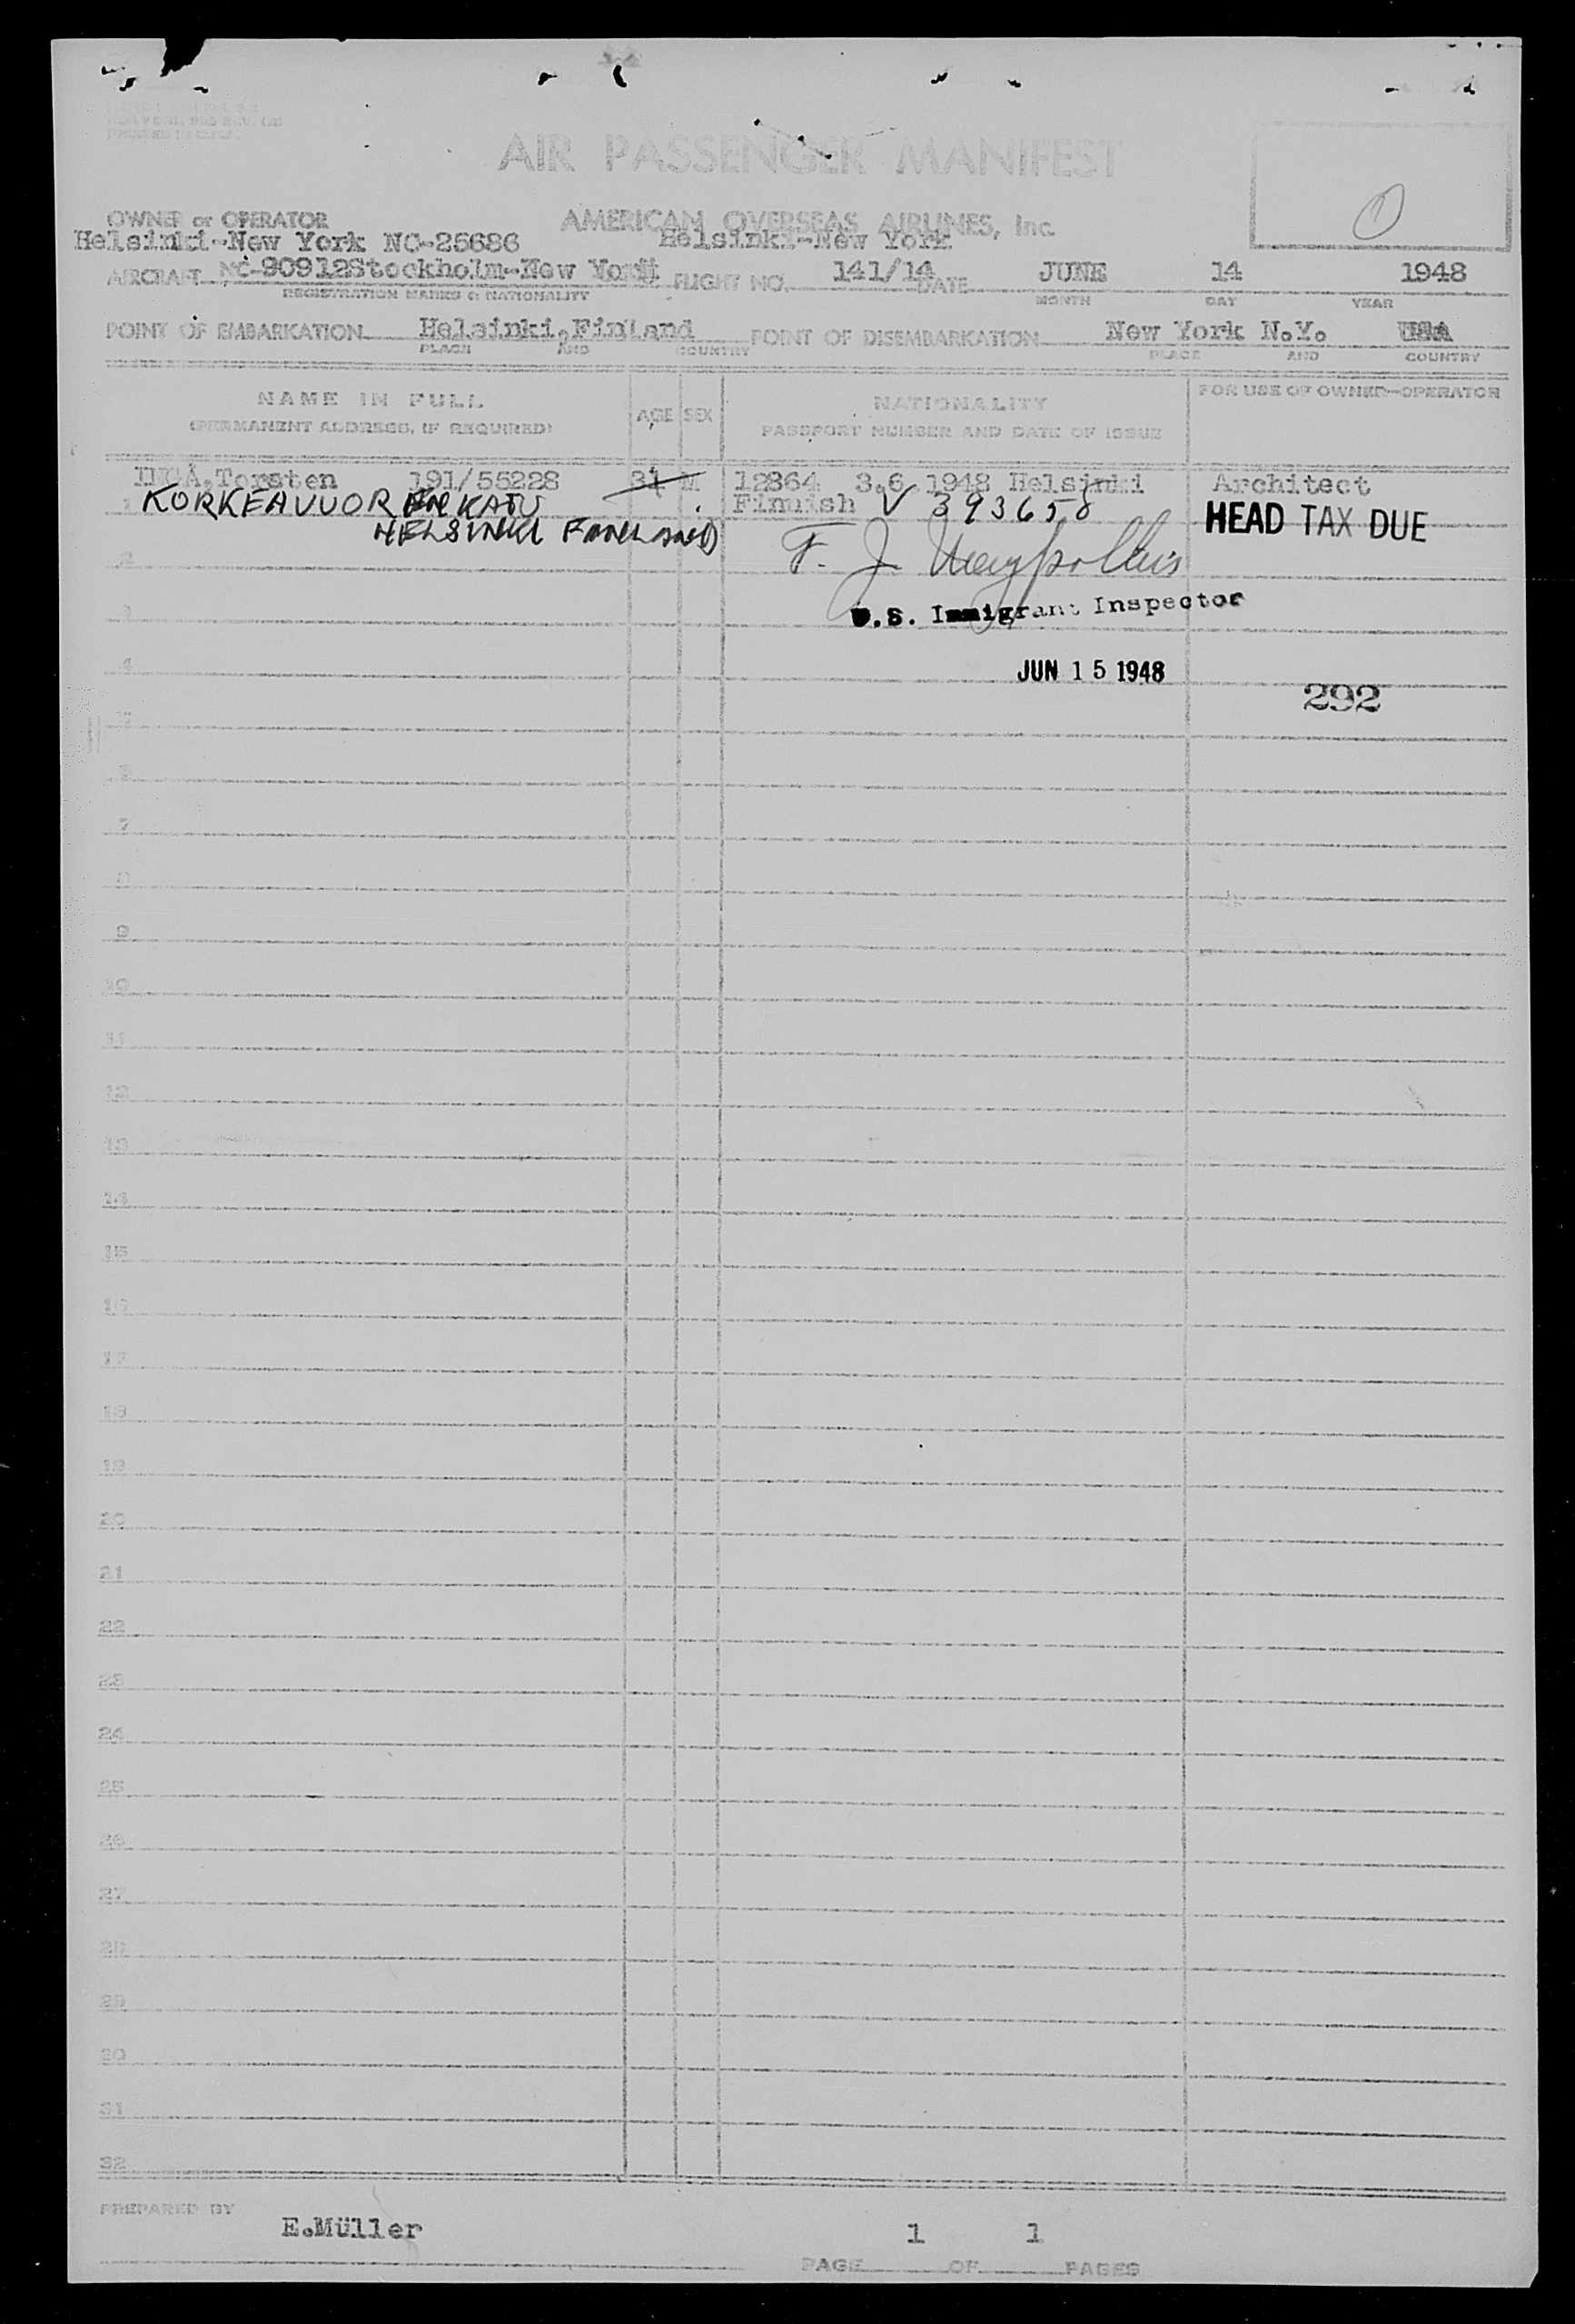 AIR PASSENGER MANIFEST
OWNER or OPERATOR AMERICAN OVERSEAS AIRLINES, Inc.
Helsinki-New York NC-25686 Helsinki-New York
AIRCRAFT NC-90912 Stockholm-New York FLIGHT NO. 141/14 DATE JUNE 14 1948
REGISTRATION MARKS & NATIONALITY MONTH DAY YEAR
POINT OF EMBARKATION Helsinki,Finland POINT OF DISEMBARKATION New York N.Y. USA
PLACE AND COUNTRY PLACE AND COUNTRY
NAME IN FULL AGE SEX NATIONALITY FOR USE OF OWNER-OPERATOR
(PERMANENT ADDRESS, IF REQUIRED) PASSPORT NUMBER AND DATE OF ISSUE
Torsten 191/55228 31 M 12864 3.6.1948 Helsinki Architect
1 KORKEAVUOREN KATU Finnish V 393658 HEAD TAX DUE
HELSINKI FINLAND
2 F. J.
3 U.S. Immigrant Inspector
4 JUN 15 1948
292
5
6
7
8
9
10
11
12
13
14
15
16
17
18
19
20
21
22
23
24
25
26
27
28
29
30
31
32
PREPARED BY
E.Müller 1 1
PAGE OF PAGES